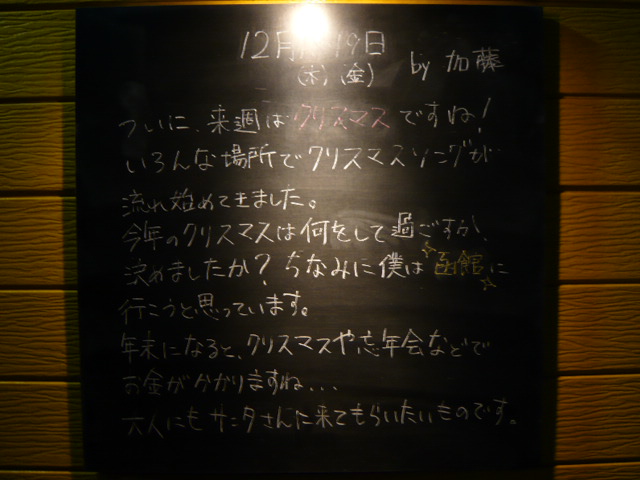 12月 19日
(木)(金) by 加藤
ついに、来週はクリスマスですね!
いろんな場所でクリスマスソングが
流れ始めてきました。
今年のクリスマスは何をして過ごすか、
決めましたか?ちなみに僕は函館に
行こうと思っています。
年末になると、クリスマスや忘年会などで
お金がかかりますね...
大人にもサンタさんに来てもらいたいものです。